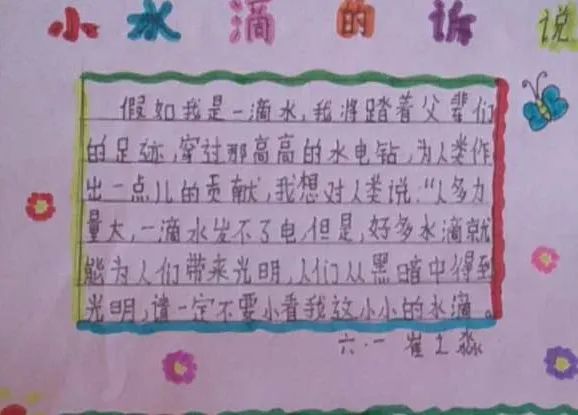 小水滴的诉说
假如我是一滴水,我将踏着父辈们
的足迹,穿过那高高的水电钻,为人类作
出一点儿的贡献,我想对人类说:“人多力
量大,一滴水发不了电,但是,好多水滴就
能为人们带来光明,人们从黑暗中得到
光明,请一定不要小看我这小小的水滴。
六·一 崔之淼